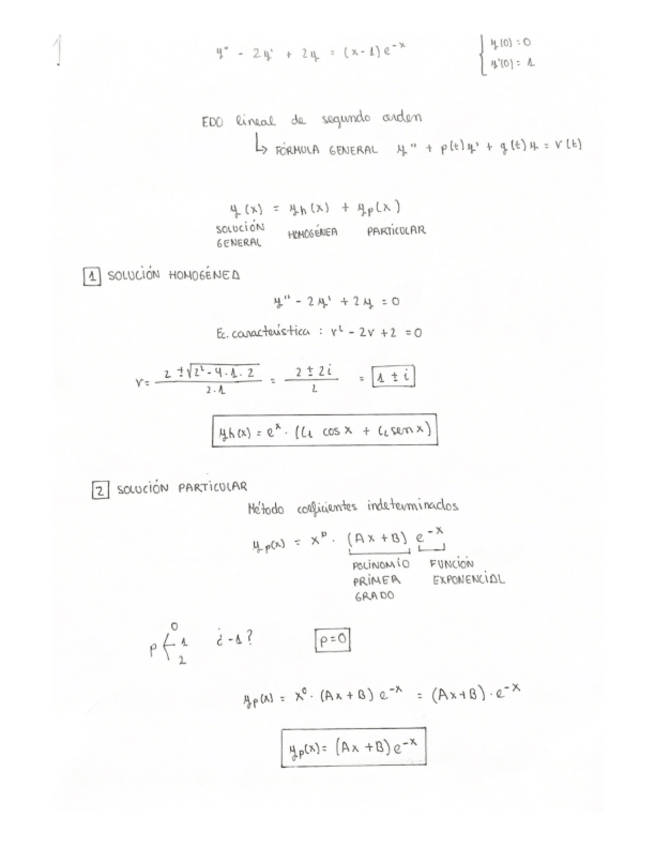 1
y'' - 2y' + 2y = (x-1)e^-x { y(0) = 0
y'(0) = 1
EDO lineal de segundo orden
↳ FÓRMULA GENERAL y'' + p(t)y' + q(t)y = r(t)
y(x) = yh(x) + yp(x)
SOLUCIÓN GENERAL HOMOGÉNEA PARTICULAR
1 SOLUCIÓN HOMOGÉNEA
y'' - 2y' + 2y = 0
Ec. característica : r² - 2r + 2 = 0
r = (2 ± √(2² - 4·1·2))/(2·1) = (2 ± 2i)/2 = 1 ± i
yh(x) = e^x · (C1 cos x + C2 sen x)
2 SOLUCIÓN PARTICULAR
Método coeficientes indeterminados
yp(x) = x^p · (Ax + B) e^-x
POLINOMIO PRIMER GRADO FUNCIÓN EXPONENCIAL
p { 0 1 2 ¿-1? p=0
yp(x) = x^0 · (Ax + B) e^-x = (Ax+B) · e^-x
yp(x) = (Ax + B) e^-x